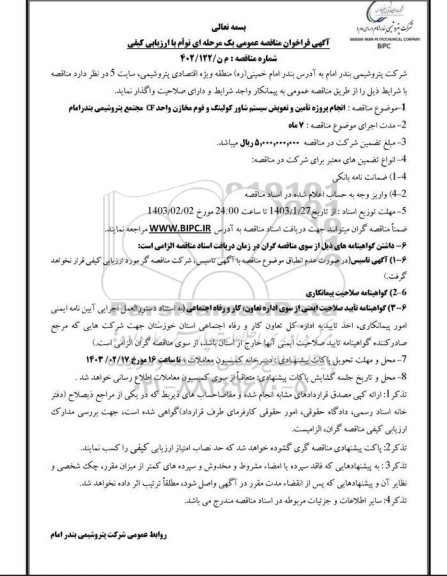 شرکت پتروشیمی بندر امام
BANDAR IMAM PETROCHEMICAL COMPANY
BIPC
بسمه تعالی
آگهی فراخوان مناقصه عمومی یک مرحله ای توأم با ارزیابی کیفی
شماره مناقصه : م ن/۴۰۲/۱۲۲
شرکت پتروشیمی بندر امام به آدرس بندر امام خمینی(ره) منطقه ویژه اقتصادی پتروشیمی، سایت 5 در نظر دارد مناقصه
با شرایط ذیل را از طریق مناقصه عمومی به پیمانکار واجد شرایط و دارای صلاحیت واگذار نماید.
1-موضوع مناقصه : انجام پروژه تأمین و تعویض سیستم شاور کولینگ و فوم مخازن واحد CF مجتمع پتروشیمی بندرامام
2-مدت اجرای موضوع مناقصه : ۷ ماه
3-مبلغ تضمین شرکت در مناقصه ۵,۰۰۰,۰۰۰,۰۰۰ ریال میباشد.
4-انواع تضمین های معتبر برای شرکت در مناقصه:
1-4) ضمانت نامه بانکی
2-4) واریز وجه به حساب اعلام شده در اسناد مناقصه
5- مهلت توزیع اسناد : از تاریخ 1403/1/27 تا ساعت 24:00 مورخ 1403/02/02
ضمناً مناقصه گران میتوانند جهت دریافت اسناد مناقصه به آدرس WWW.BIPC.IR مراجعه نمایند.
۶- داشتن گواهینامه های ذیل از سوی مناقصه گران در زمان دریافت اسناد مناقصه الزامی است:
۱-۶) آگهی تاسیس(در صورت عدم انطباق موضوع مناقصه با آگهی تاسیس، شرکت مناقصه گر مورد ارزیابی کیفی قرار نخواهد
گرفت.)
2-6) گواهینامه صلاحیت پیمانکاری
۳-۶) گواهینامه تأیید صلاحیت ایمنی از سوی اداره تعاون، کار و رفاه اجتماعی (به استناد دستورالعمل اجرایی آیین نامه ایمنی
امور پیمانکاری، اخذ تاییدیه اداره کل تعاون کار و رفاه اجتماعی استان خوزستان جهت شرکت هایی که مرجع
صادرکننده گواهینامه تایید صلاحیت ایمنی آنها خارج از استان باشد، از سوی مناقصه گران الزامی است.)
۷- محل و مهلت تحویل پاکات پیشنهادی : دبیرخانه کمیسیون معاملات ؛ تا ساعت ۱۶ مورخ ۱۴۰۳/۰۲/۱۷
8- محل و تاریخ جلسه گشایش پاکات پیشنهادی: متعاقباً از سوی کمیسیون معاملات اطلاع رسانی خواهد شد .
تذکر1: ارائه کپی مصدق قراردادهای مشابه انجام شده و مفاصاحساب های ذیربط که در یکی از مراجع ذیصلاح (دفتر
خانه اسناد رسمی، دادگاه حقوقی، امور حقوقی کارفرمای طرف قرارداد)گواهی شده است، جهت بررسی مدارک
ارزیابی کیفی مناقصه گران، الزامیست.
تذکر2: پاکت پیشنهادی مناقصه گری گشوده خواهد شد که حد نصاب امتیاز ارزیابی کیفی را کسب نمایند.
تذکر3 : به پیشنهادهایی که فاقد سپرده یا امضاء مشروط و مخدوش و سپرده های کمتر از میزان مقرر، چک شخصی و
نظایر آن و پیشنهادهایی که پس از انقضاء مدت مقرر در آگهی واصل شود، مطلقاً ترتیب اثر داده نخواهد شد.
تذکر4: سایر اطلاعات و جزئیات مربوطه در اسناد مناقصه مندرج می باشد.
روابط عمومی شرکت پتروشیمی بندر امام